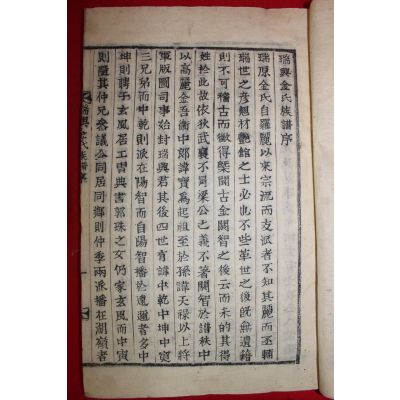 瑞興金氏族譜序
瑞原金氏自羅麗以來宗流而支派者不知其麗而丕輔
瑞世之彦翹材艶館之士必也不些而革世之後旣無遺籍
則不可稽古而徵得槩聞古金閼智之後云而未的其得
姓於此故依狄武襄不冒梁公之義不著閼智於譜秩中
以高麗金吾衛中郎諱寶爲起祖至於孫諱天祿以上將
軍版圖司事始封瑞興君其後四世有諱中乾中坤中寅
三兄弟而中乾則派在陽智而自陽智播於遠邇者多中
坤則聘于玄風居工曺典書郭珠之女仍家玄風而中寅
則隨其仲兄叅議公同居同鄕則仲季兩派播在湖嶺者
瑞興金氏族譜序
一